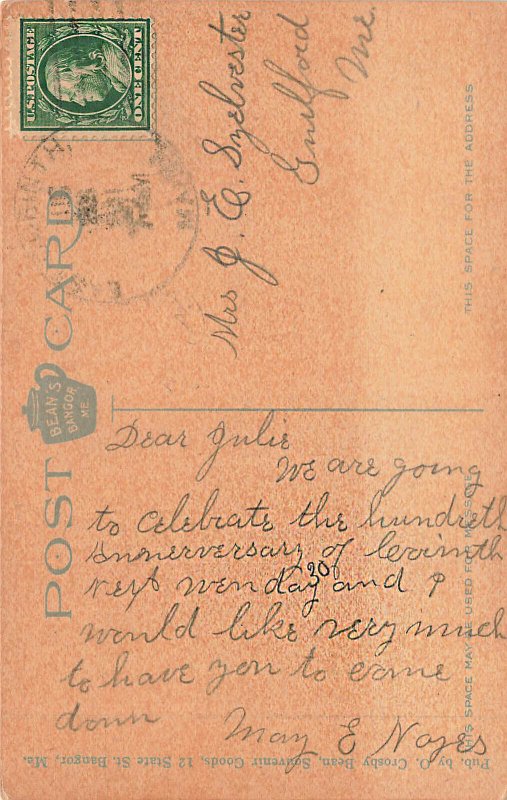 U.S. POSTAGE
ONE CENT
POST CARD
BEAN'S
BANGOR
ME.
THIS SPACE FOR THE ADDRESS
Mrs J. E. Sylvester
Guilford
Me.
THIS SPACE MAY BE USED FOR MESSAGE
Dear Julie
We are going
to celebrate the hundreth
annerversary of Corinth
next wenday 30 and I
would like very much
to have you to come
down
May E Noyes
Pub. by O. Crosby Bean, Souvenir Goods, 12 State St. Bangor, Me.